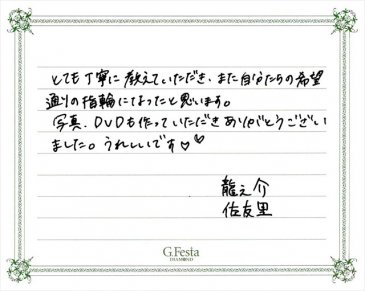 とても丁寧に教えていただき、また自分たちの希望
通りの指輪になったと思います。
写真、DVDも作っていただきありがとうござい
ました。うれしいです♡♡
龍之介
佐友里
G.Festa
DIAMOND